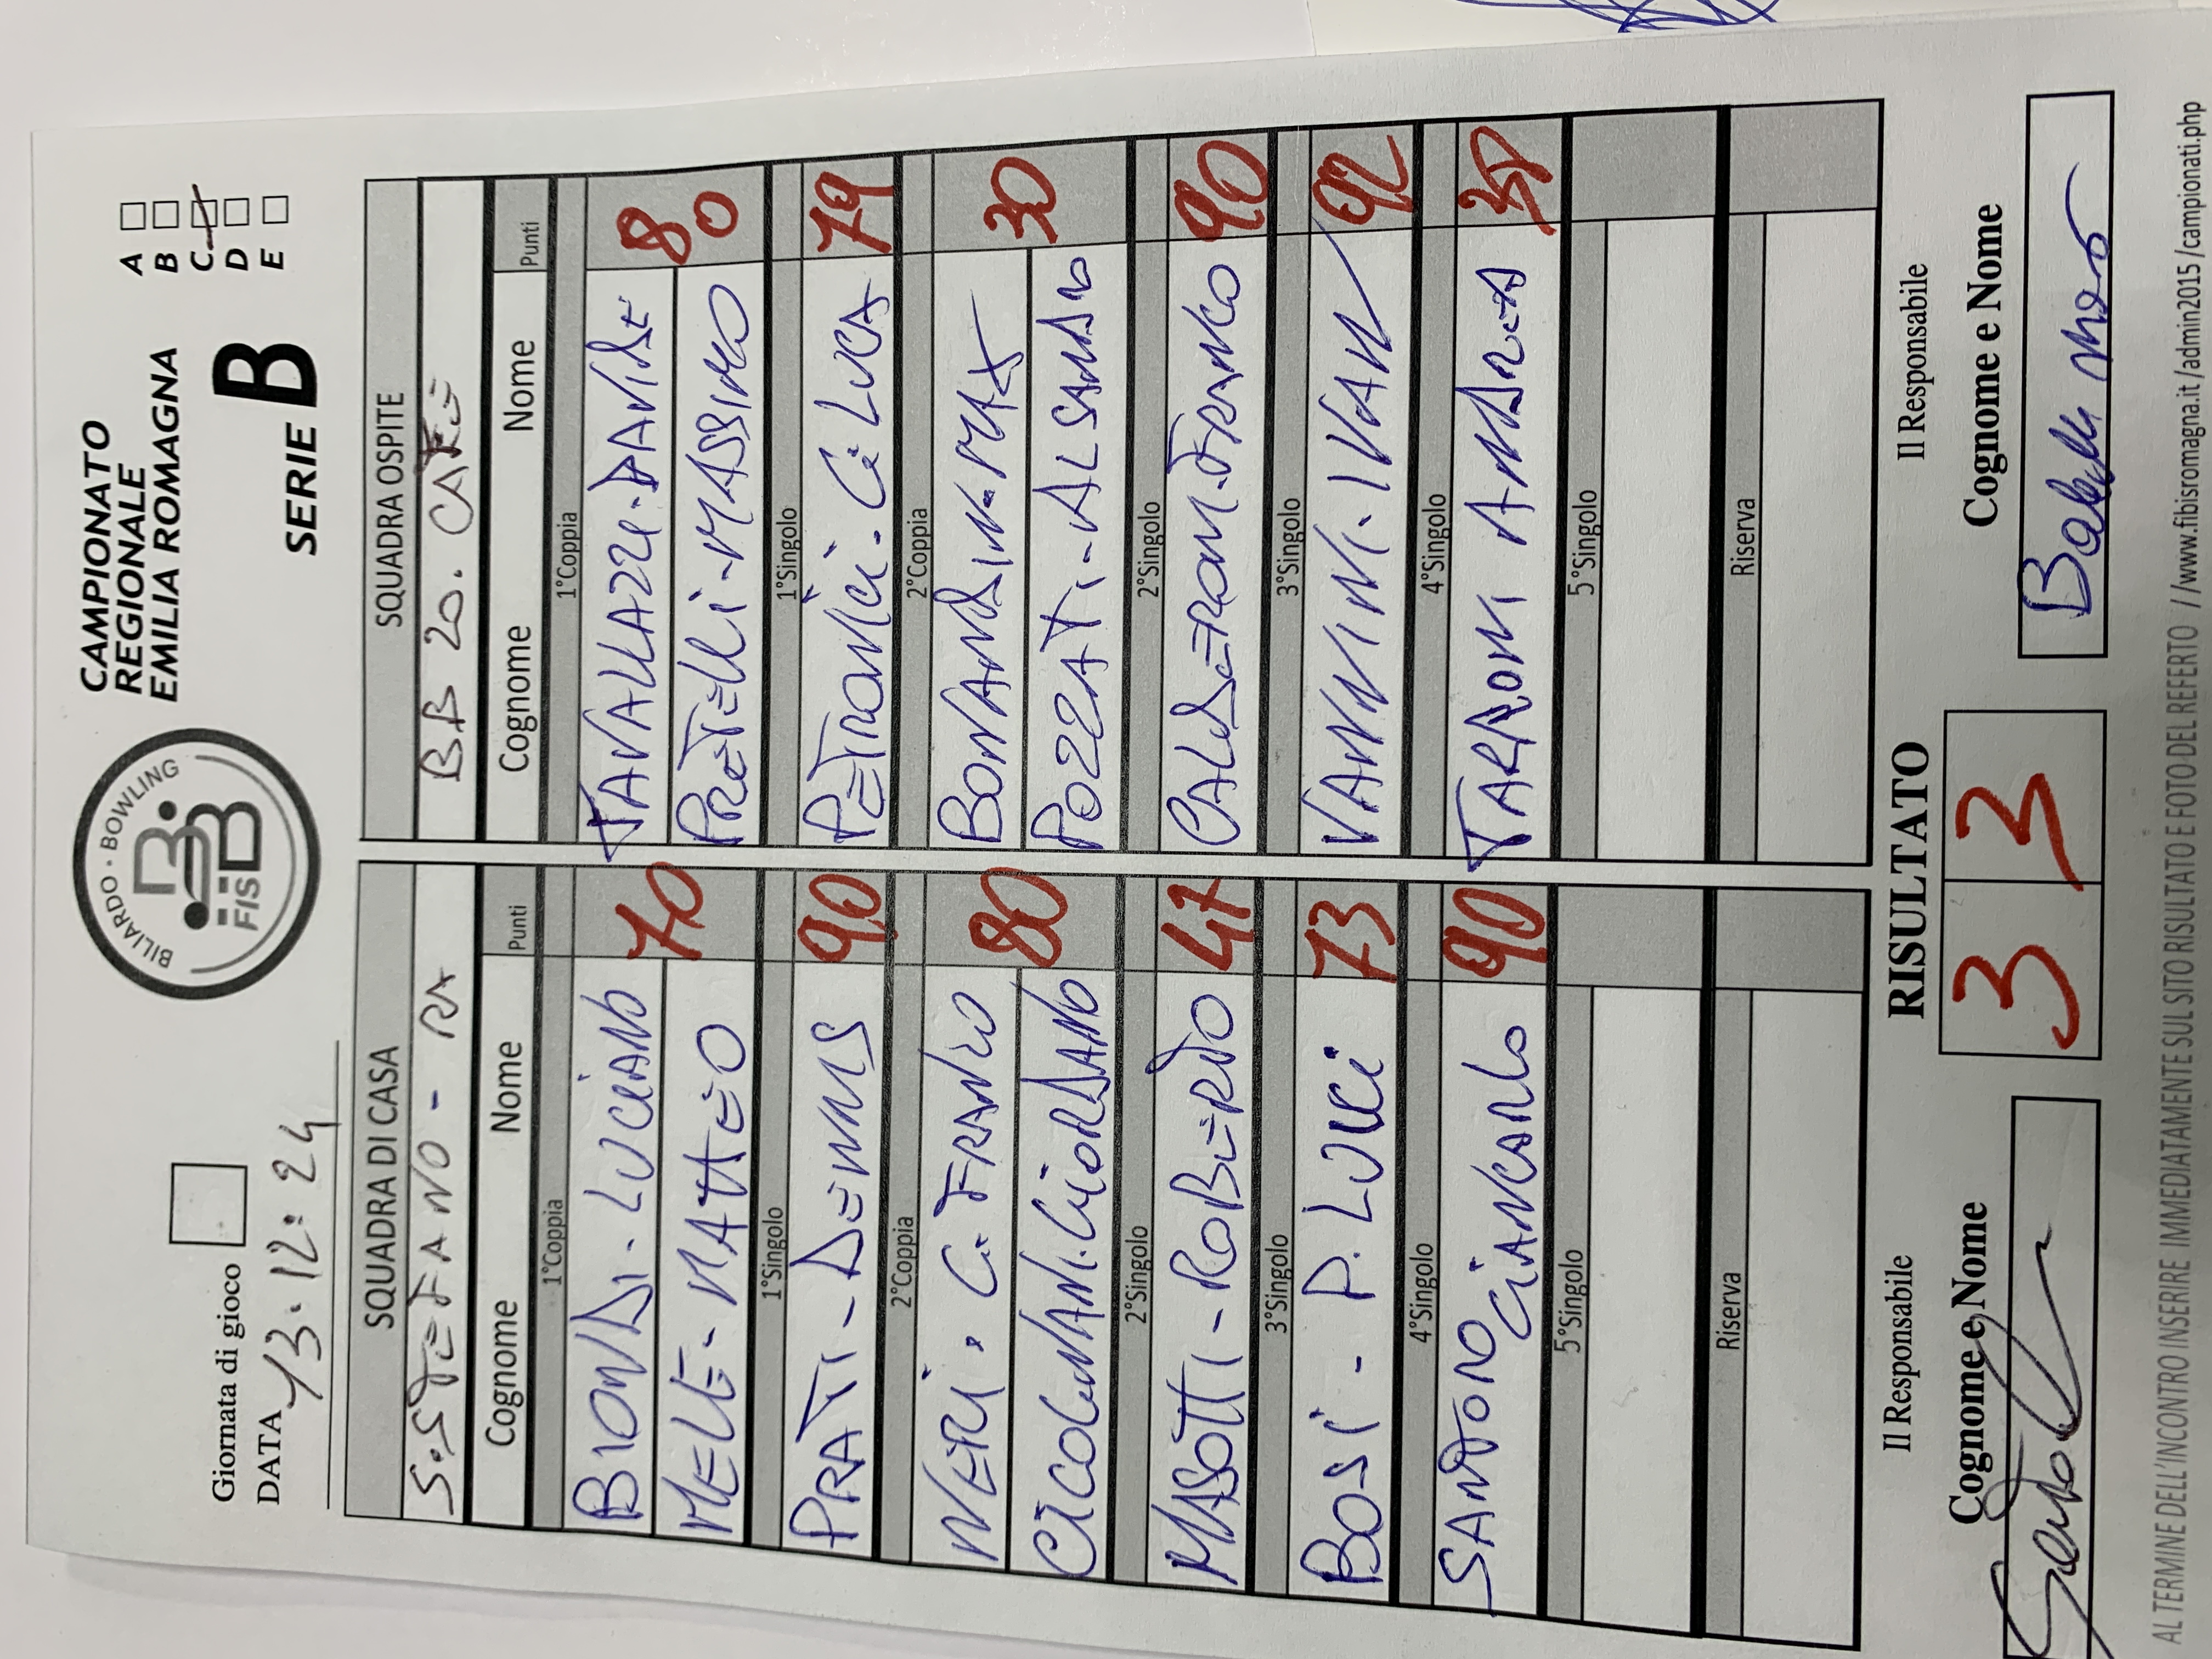 Giornata di gioco
DATA 13.12.24
BILIARDO · BOWLING
FISBB
CAMPIONATO
REGIONALE
EMILIA ROMAGNA
SERIE B
A
B
C
D
E
SQUADRA DI CASA
S.STEFANO - RA
Cognome Nome Punti
1°Coppia
BIONDI. LUCIANO 70
MELE - MATTEO
1°Singolo
PRATI - DENNIS 90
2°Coppia
NERI. G. FRANCO 80
CICOGNANI. GIORDANO
2°Singolo
MASOTTI - ROBERTO 47
3°Singolo
BOSI - P. LUCI 73
4°Singolo
SANTORO GIANCARLO 90
5°Singolo
Riserva
SQUADRA OSPITE
B.B 20. CAFE
Cognome Nome Punti
1°Coppia
TAVALLAZZI. DAVIDE 80
PRETELLI - MASSIMO
1°Singolo
PETRONICI. G. LUCA 79
2°Coppia
BONANDINI. MAX 30
POZZATI - ALSANDRO
2°Singolo
CALDERONI. FRANCO 90
3°Singolo
VANNINI. IVAN 92
4°Singolo
TARRONI ANDREA
5°Singolo
Riserva
Il Responsabile
Cognome e Nome
RISULTATO
3 3
Il Responsabile
Cognome e Nome
AL TERMINE DELL'INCONTRO INSERIRE IMMEDIATAMENTE SUL SITO RISULTATO E FOTO DEL REFERTO //www.fibisromagna.it/admin2015/campionati.php